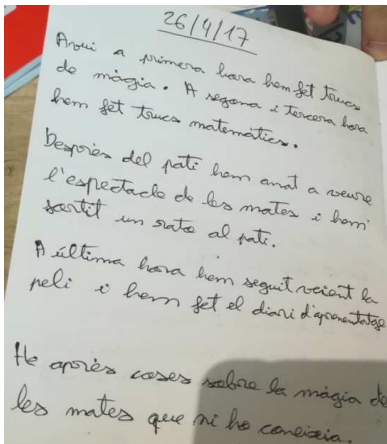 26/4/17
Avui a primera hora hem fet trucs
de màgia. A segona i tercera hora
hem fet trucs matemàtics.
Després del pati hem anat a veure
l'espectacle de les mates i hem
sortit un rato al pati.
A última hora hem seguit veient la
peli i hem fet el diari d'aprenentatge
He après coses sobre la màgia de
les mates que ni ho coneixia.